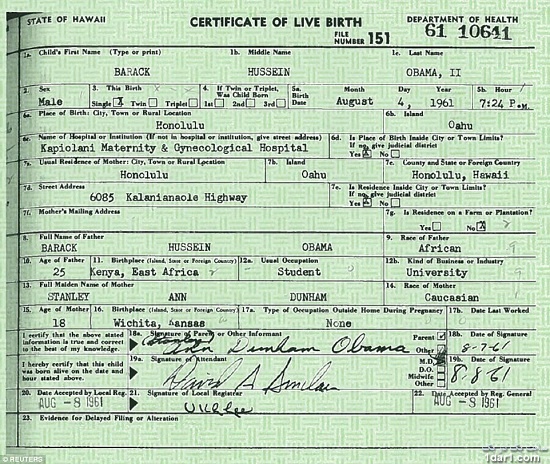 STATE OF HAWAII CERTIFICATE OF LIVE BIRTH DEPARTMENT OF HEALTH
FILE NUMBER 151 61 10641
1a. Child's First Name (Type or print) 1b. Middle Name 1c. Last Name
BARACK HUSSEIN OBAMA, II
2. Sex 3. This Birth 4. If Twin or Triplet, Was Child Born 5a. Birth Date Month Day Year 5b. Hour
Male Single X Twin Triplet 1st 2nd 3rd August 4, 1961 7:24 P.M.
6a. Place of Birth: City, Town or Rural Location 6b. Island
Honolulu Oahu
6c. Name of Hospital or Institution (If not in hospital or institution, give street address) 6d. Is Place of Birth Inside City or Town Limits? If no, give judicial district
Kapiolani Maternity & Gynecological Hospital Yes X No
7a. Usual Residence of Mother: City, Town or Rural Location 7b. Island 7c. County and State or Foreign Country
Honolulu Oahu Honolulu, Hawaii
7d. Street Address 7e. Is Residence Inside City or Town Limits? If no, give judicial district
6085 Kalanianaole Highway Yes X No
7f. Mother's Mailing Address 7g. Is Residence on a Farm or Plantation?
Yes No X
8. Full Name of Father 9. Race of Father
BARACK HUSSEIN OBAMA African 9
10. Age of Father 11. Birthplace (Island, State or Foreign Country) 12a. Usual Occupation 12b. Kind of Business or Industry
25 Kenya, East Africa Student University
13. Full Maiden Name of Mother 14. Race of Mother
STANLEY ANN DUNHAM Caucasian
15. Age of Mother 16. Birthplace (Island, State or Foreign Country) 17a. Type of Occupation Outside Home During Pregnancy 17b. Date Last Worked
18 Wichita, Kansas None
I certify that the above stated information is true and correct to the best of my knowledge. 18a. Signature of Parent or Other Informant Parent Other 18b. Date of Signature
(Stanley) Ann Dunham Obama 8-7-61
I hereby certify that this child was born alive on the date and hour stated above. 19a. Signature of Attendant M.D. D.O. Midwife Other 19b. Date of Signature
David A Sinclair 8-8-61
20. Date Accepted by Local Reg. 21. Signature of Local Registrar 22. Date Accepted by Reg. General
AUG -8 1961 AUG -8 1961
23. Evidence for Delayed Filing or Alteration
© REUTERS
1dari.com